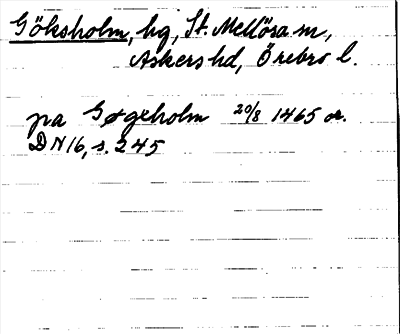 Göksholm, hg, St. Mellösa sn,
Askers hd, Örebro l.
pa Gøgeholm 20/8 1465 or.
DN 16, s. 245